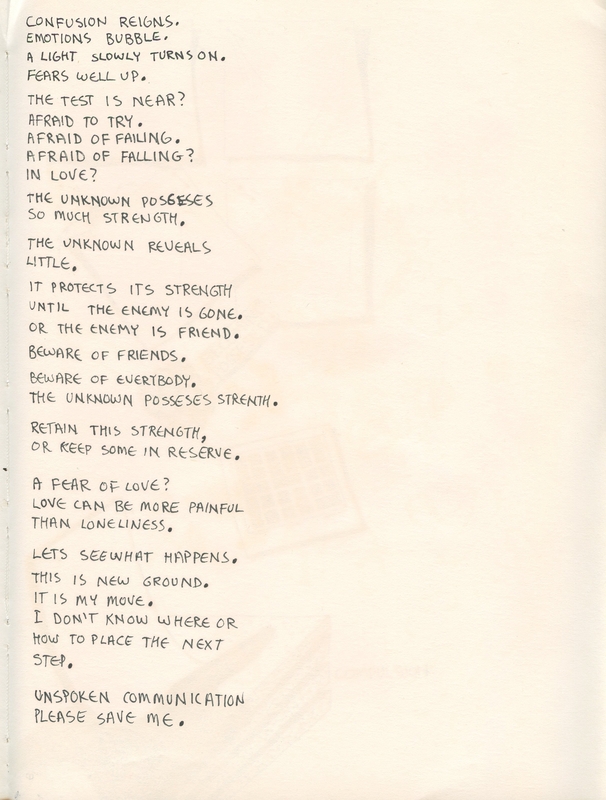 CONFUSION REIGNS.
EMOTIONS BUBBLE.
A LIGHT SLOWLY TURNS ON.
FEARS WELL UP.
THE TEST IS NEAR?
AFRAID TO TRY.
AFRAID OF FAILING.
AFRAID OF FALLING?
IN LOVE?
THE UNKNOWN POSSESES
SO MUCH STRENGTH.
THE UNKNOWN REVEALS
LITTLE.
IT PROTECTS ITS STRENGTH
UNTIL THE ENEMY IS GONE.
OR THE ENEMY IS FRIEND.
BEWARE OF FRIENDS.
BEWARE OF EVERYBODY.
THE UNKNOWN POSSESES STRENTH.
RETAIN THIS STRENGTH,
OR KEEP SOME IN RESERVE.
A FEAR OF LOVE?
LOVE CAN BE MORE PAINFUL
THAN LONELINESS.
LETS SEE WHAT HAPPENS.
THIS IS NEW GROUND.
IT IS MY MOVE.
I DON'T KNOW WHERE OR
HOW TO PLACE THE NEXT
STEP.
UNSPOKEN COMMUNICATION
PLEASE SAVE ME.